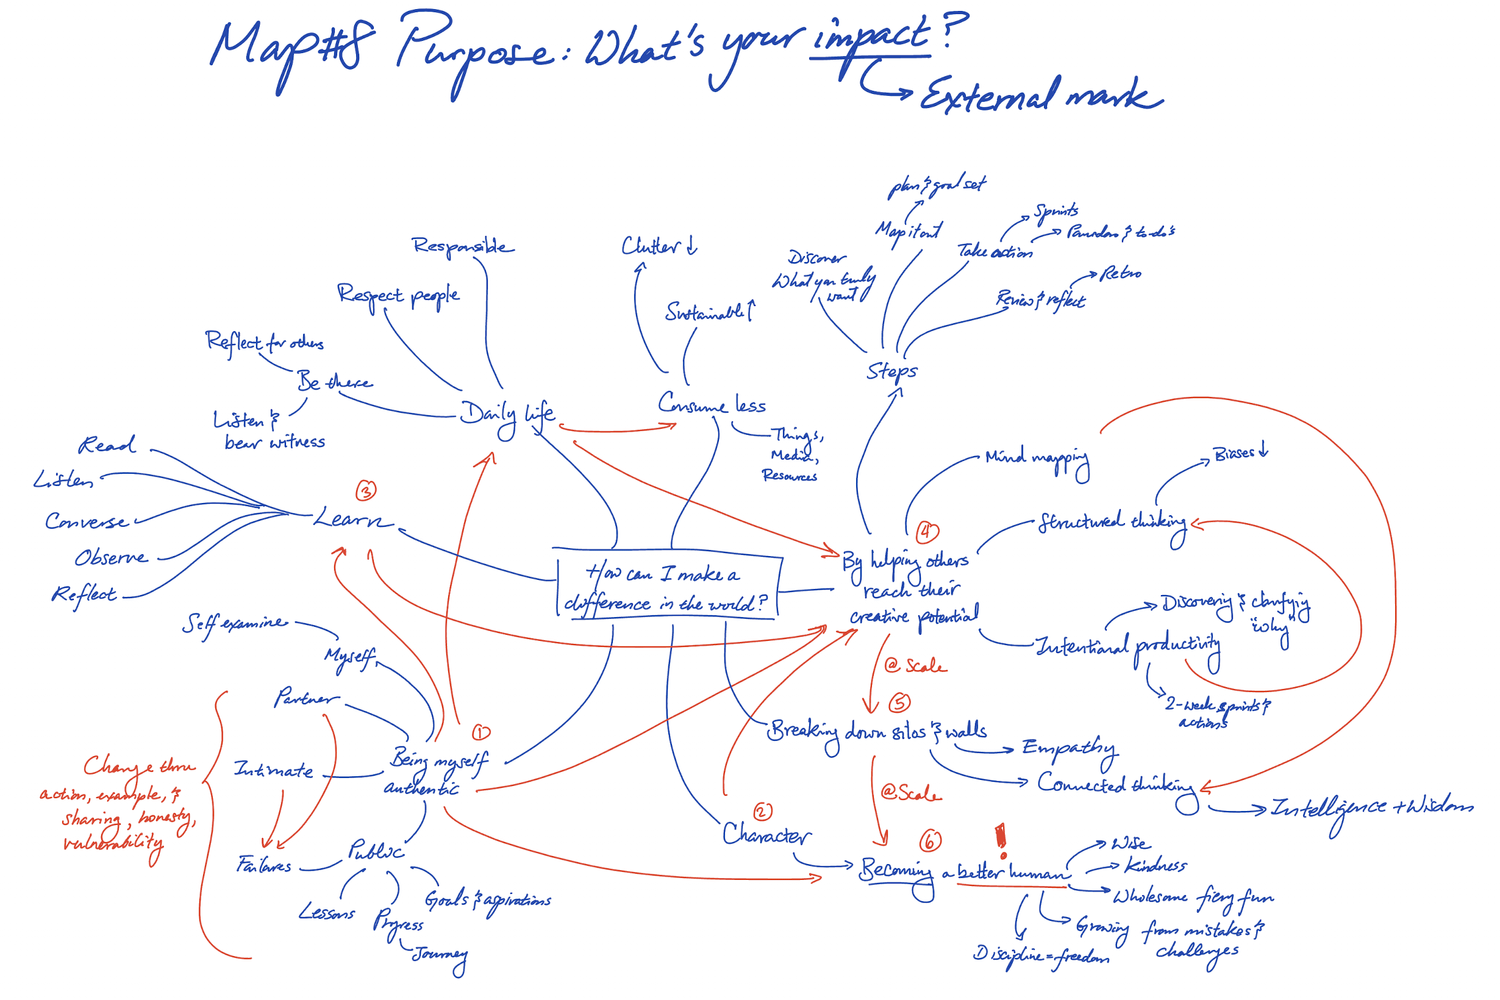 Map#8 Purpose: What's your impact?
External mark
plan & goal set
Map it out
Sprints
Take action
to-do's
Discover
What you truly
want
Review & reflect
Retro
Steps
Responsible
Respect people
Reflect for others
Be there
Listen &
bear witness
Daily life
Clutter ↓
Sustainable ↑
Consume less
Things,
Media,
Resources
Read
Listen
Converse
Observe
Reflect
③
Learn
How can I make a
difference in the world?
④
By helping others
reach their
creative potential
Mind mapping
Structured thinking
Biases ↓
Intentional productivity
Discovering & clarifying
"why"
2-week sprints &
actions
@ Scale
⑤
Breaking down silos & walls
Empathy
Connected thinking
Intelligence + Wisdom
@ Scale
Self examine
Myself
Partner
Intimate
①
Being myself
authentic
Change thru
action, example, &
sharing, honesty,
vulnerability
Failures
Public
Lessons
Progress
Journey
Goals & aspirations
②
Character
⑥
!
Becoming a better human
Wise
Kindness
Wholesome fiery fun
Growing from mistakes &
challenges
Discipline = freedom